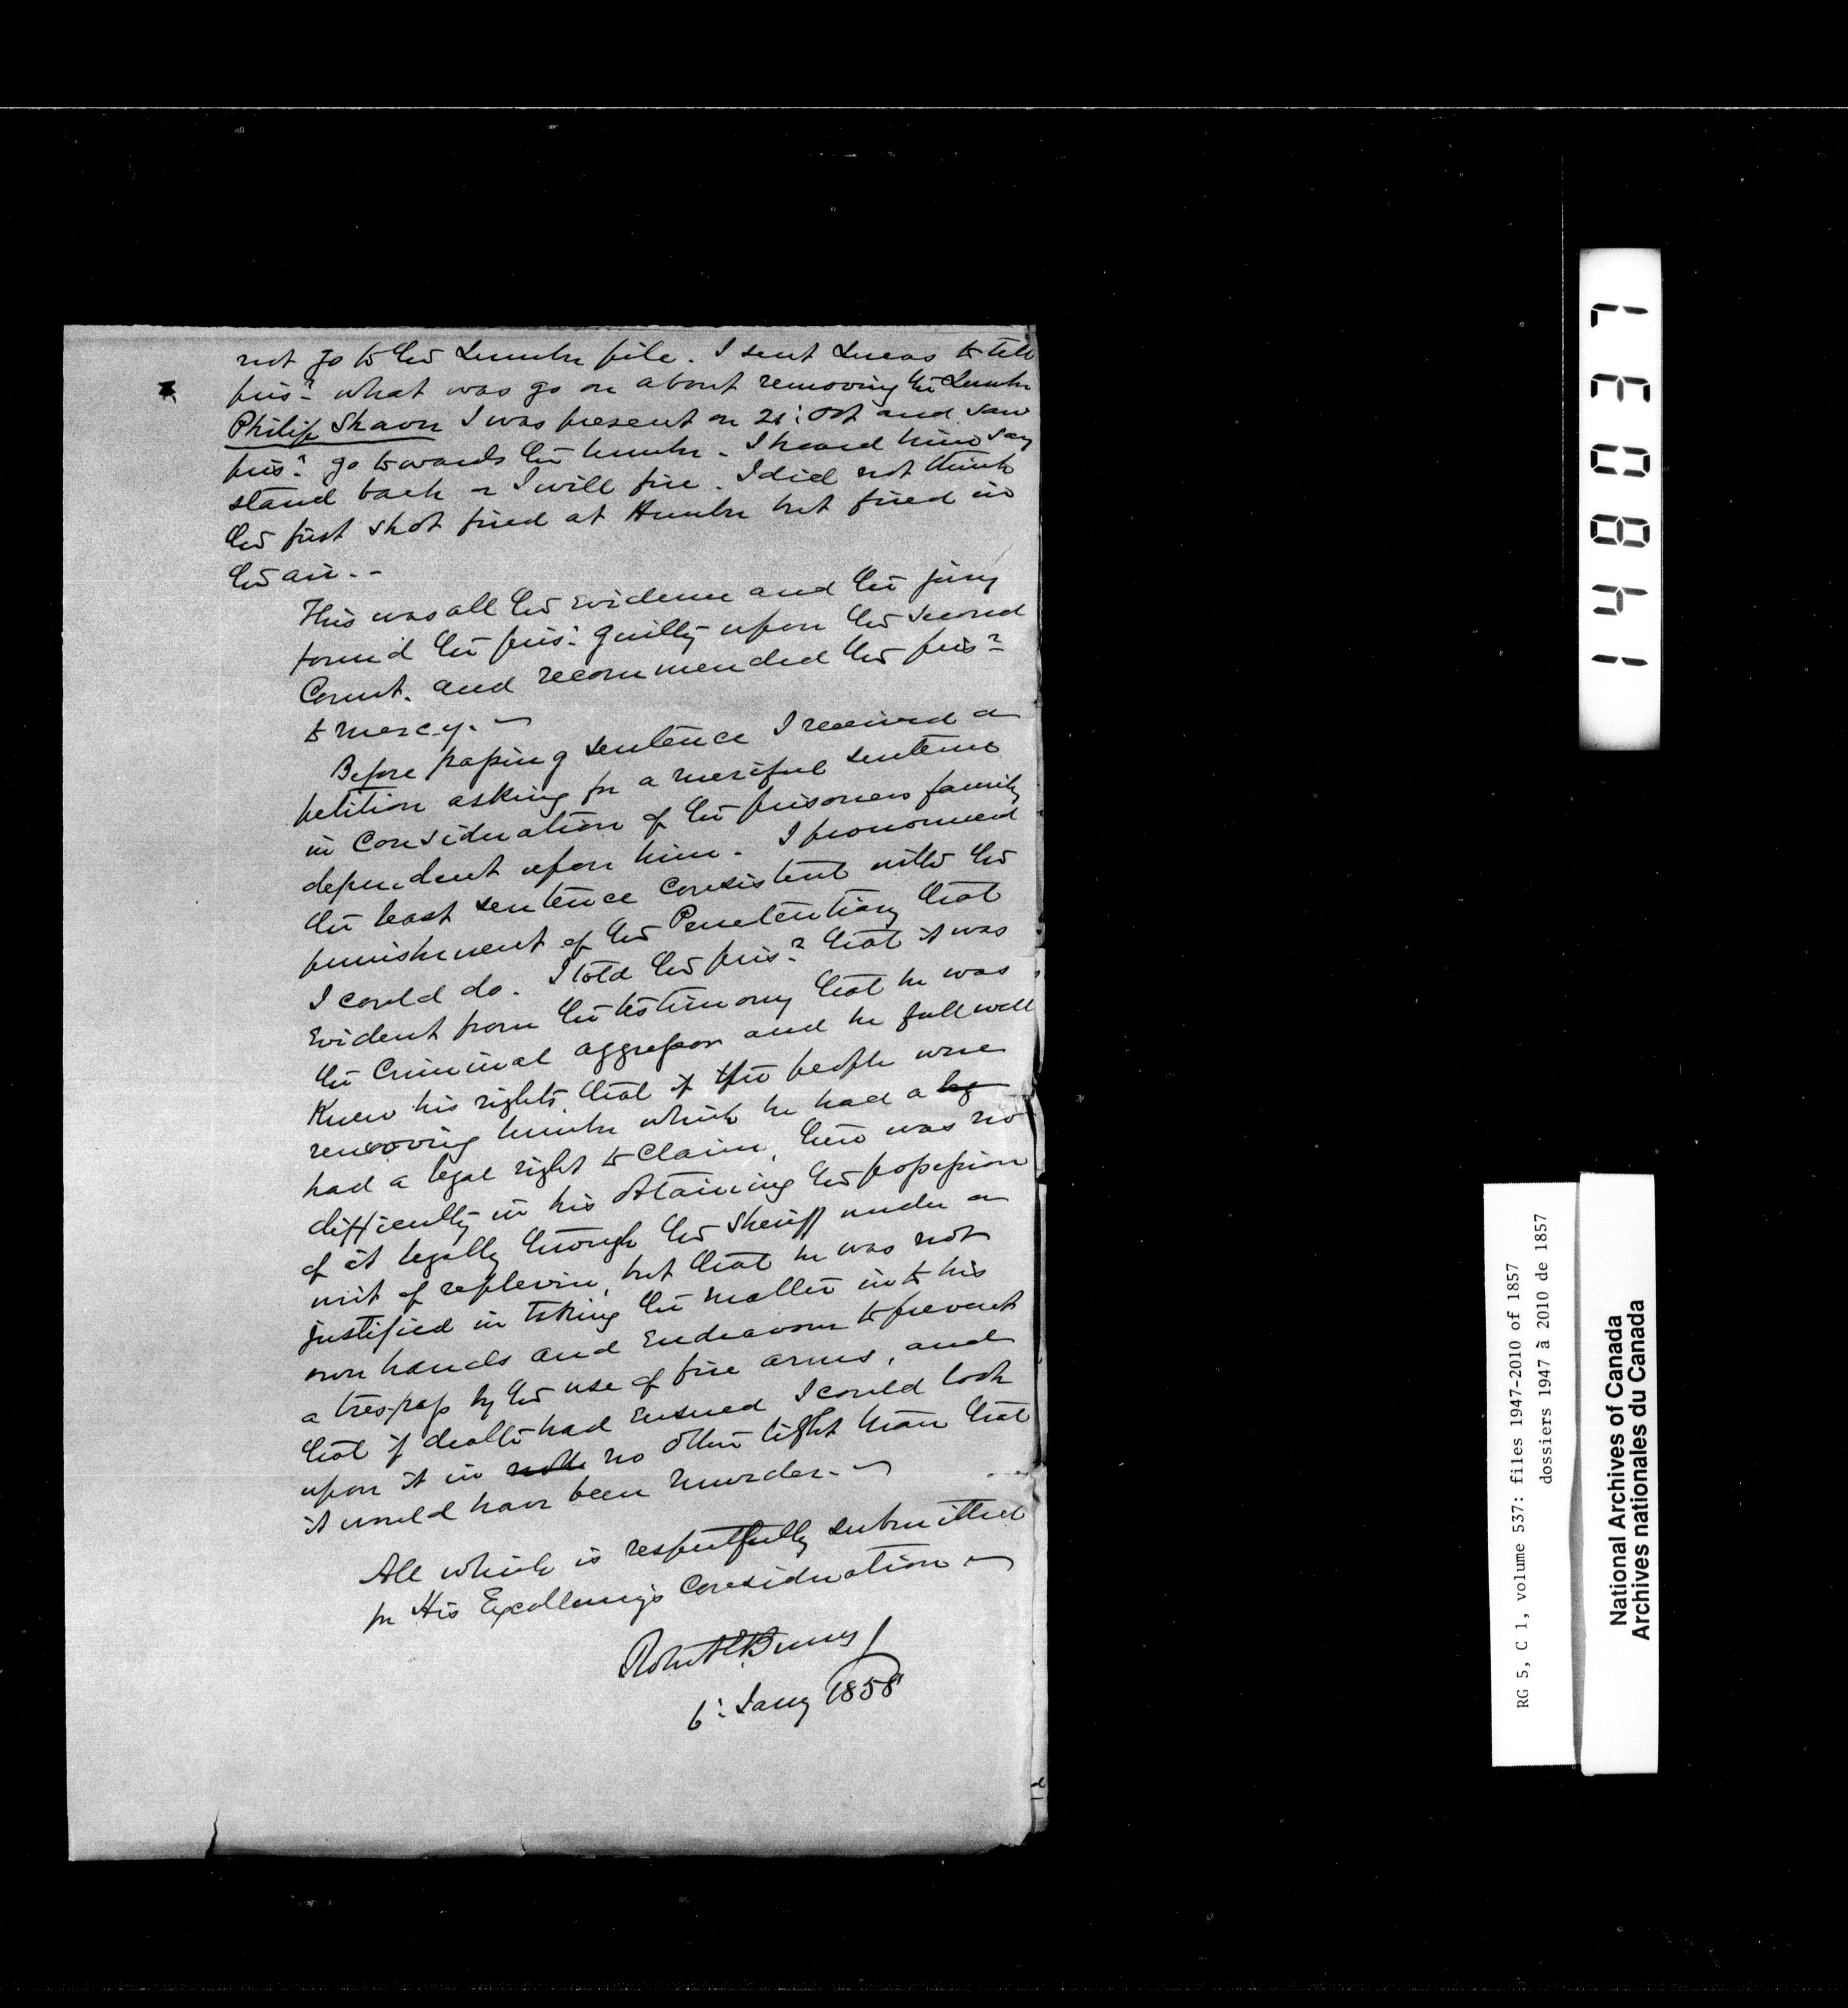 not go to the Lumber pile. I sent Lucas to tell
pris.r what was go on about removing the Lumber
Philip Shaver I was present on 21: Oct and saw
pris.r go towards the lumber - I heard him say
stand back or I will fire. I did not think
the first shot fired at Humber but fired in
the air. -
This was all the evidence and the jury
found the pris.r guilty upon the second
Count. and recommended the pris.r
to mercy. -
Before passing sentence I received a
petition asking for a merciful sentence
in consideration of the prisoners family
dependent upon him. I pronounced
the least sentence consistent with the
punishment of the Penetentiary that
I could do. I told the pris.r that it was
Evident from the testimony that he was
the Criminal aggressor and he full well
Knew his rights, that if the people were
removing lumber which he had a leg
had a legal right to claim, there was no
difficulty in his obtaining the possession
of it legally through the Sheriff under a
writ of replevin, but that he was not
justified in taking the matter into his
own hands and Endeavour to prevent
a trespass by the use of fire arms, and
that if death had Ensued I could look
upon it in no other light than that
it would have been murder. -
All which is respectfully submitted
for His Excellency's Consideration -
Robt E Burns J
6: Jany 1858
148037
RG 5, C 1, volume 537: files 1947-2010 of 1857
dossiers 1947 à 2010 de 1857
National Archives of Canada
Archives nationales du Canada